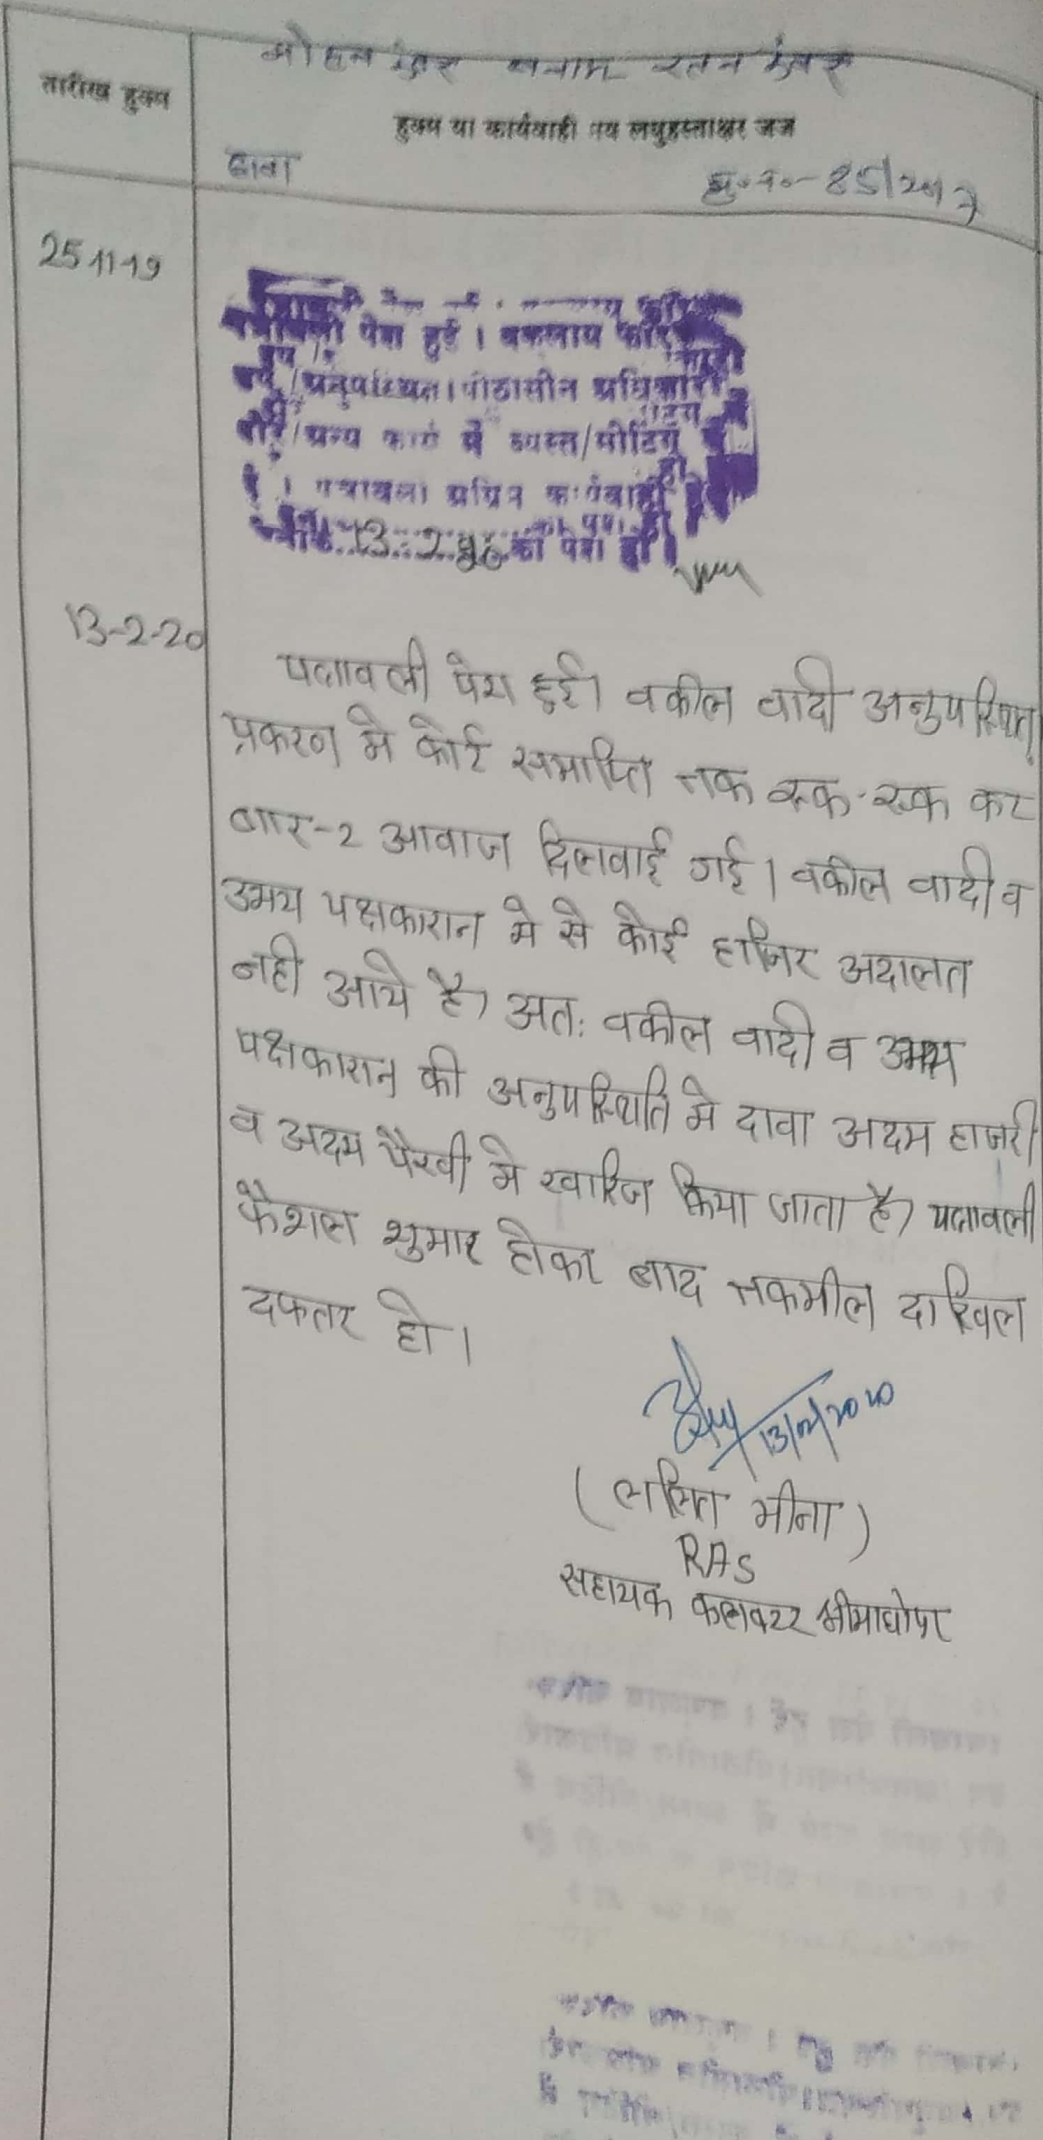 मोहन कुंवर बनाम रतन कुंवर
तारीख हुक्म
हुक्म या कार्यवाही मय लघुहस्ताक्षर जज
दावा
मु.न.-85/2017
25-11-19
पत्रावली पेश हुई । वकलाय फरि
अनुपस्थित । पीठासीन अधिकारी
दौरे/अन्य कार्य में व्यस्त/मीटिंग में
है । पत्रावली अग्रिम कार्यवाही
13-2-20 को पेश हो ।
13-2-20
पत्रावली पेश हुई। वकील वादी अनुपस्थित
प्रकरण मे कोर्ट समाप्ति तक रूक-रूक कर
बार-2 आवाज दिलवाई गई । वकील वादी व
उभय पक्षकारान मे से कोई हाजिर अदालत
नही आये है। अतः वकील वादी व उभय
पक्षकारान की अनुपस्थिति मे दावा अदम हाजरी
व अदम पैरवी मे खारिज किया जाता है। पत्रावली
फैशल शुमार होकर बाद तकमील दाखिल
दफतर हो ।
13/02/2020
(ललित मीना)
RAS
सहायक कलक्टर